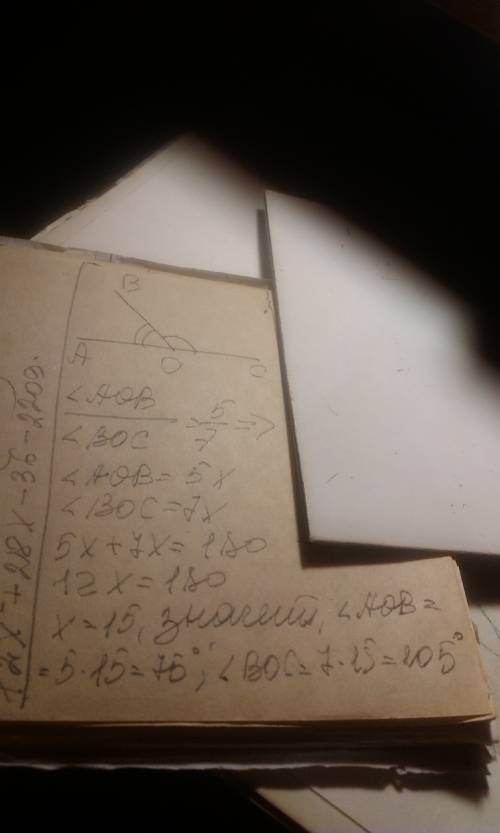 B
A O C
∠AOB
∠BOC
= 5/7 =>
∠AOB = 5x
∠BOC = 7x
5x + 7x = 180
12x = 180
x = 15, значит, ∠AOB =
= 5·15 = 75°; ∠BOC = 7·15 = 105°